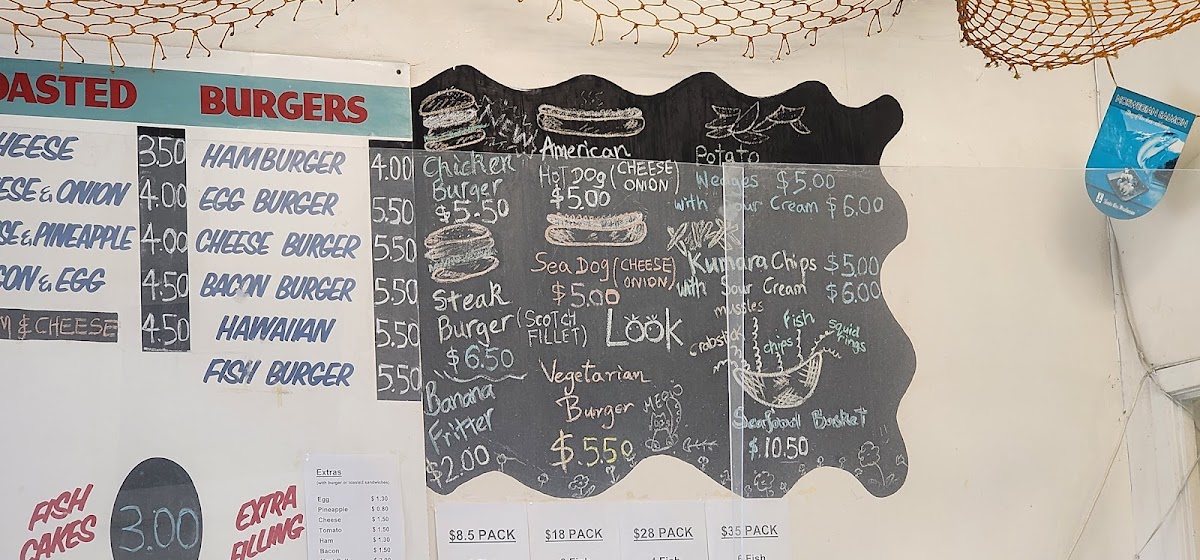 OASTED BURGERS
HEESE 3.50
ESE & ONION 4.00
SE & PINEAPPLE 4.00
CON & EGG 4.50
M & CHEESE 4.50
HAMBURGER 4.00
EGG BURGER 5.50
CHEESE BURGER 5.50
BACON BURGER 5.50
HAWAIIAN 5.50
FISH BURGER 5.50
Chicken
Burger
$5.50
Steak
Burger (SCOTCH
FILLET)
$6.50
Banana
Fritter
$2.00
American
HOT DOG (CHEESE
ONION)
$5.00
Sea Dog (CHEESE
ONION)
$5.00
LOOK
Vegetarian
Burger
$.5.50
MEOW
Potato
Wedges $5.00
with Sour Cream $6.00
Kumara Chips $5.00
with Sour Cream $6.00
mussles
crabstick
Fish
chips
squid
rings
Seafood Basket
$.10.50
FISH
CAKES
3.00
EXTRA
FILLING
Extras
(with burger or toasted sandwiches)
Egg $ 1.30
Pineapple $ 0.80
Cheese $ 1.50
Tomato $ 1.50
Ham $ 1.30
Bacon $ 1.50
$8.5 PACK
$18 PACK
$28 PACK
$35 PACK
6 Fish